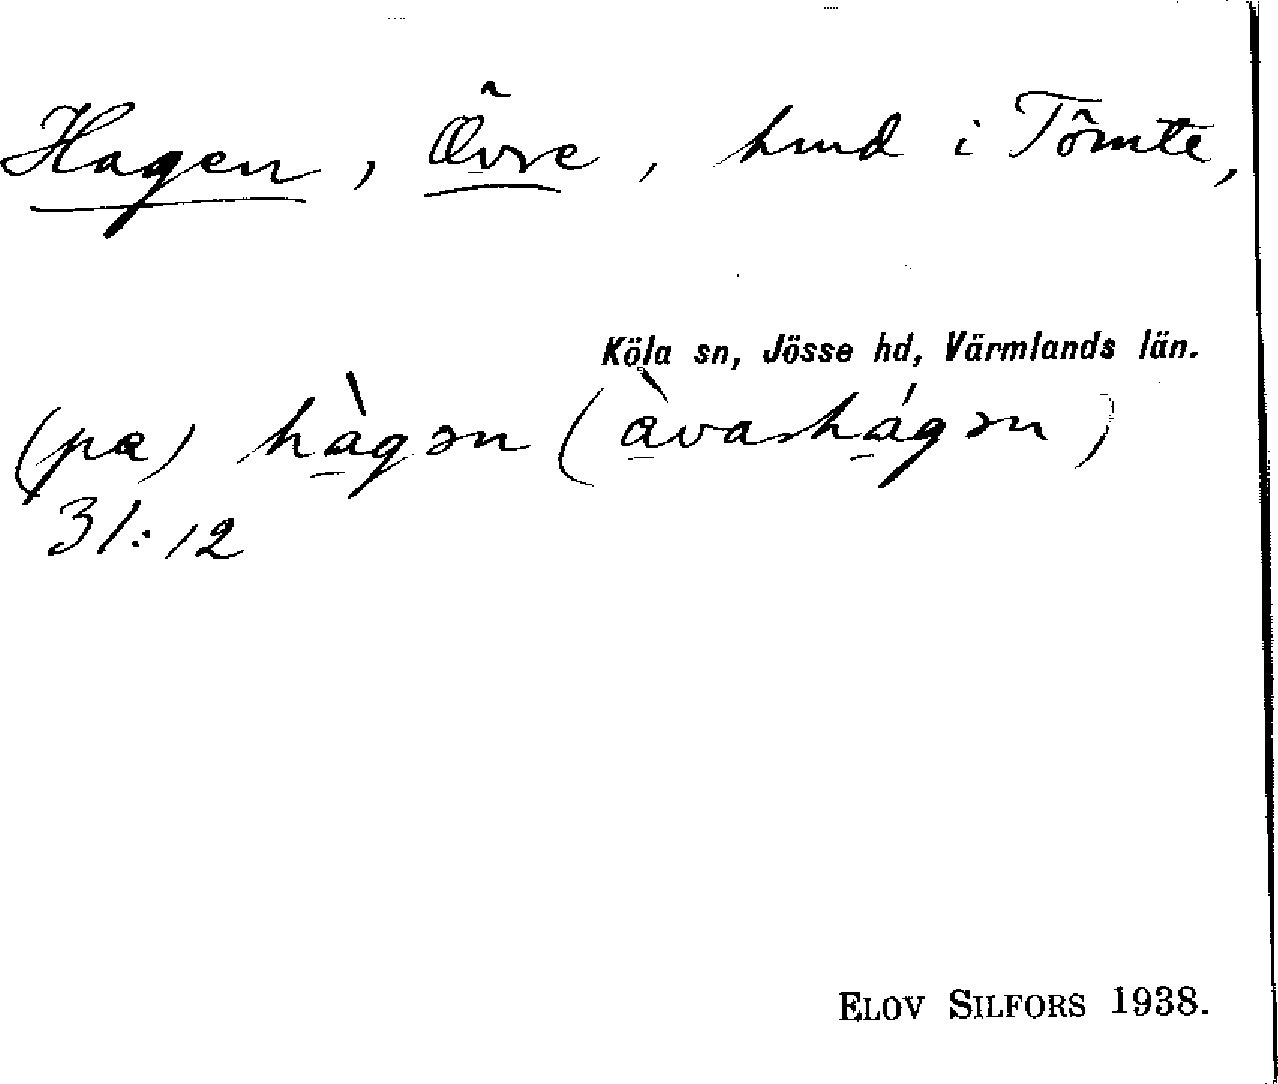 Hagen, Övre, hmd i Tômte,
Köla sn, Jösse hd, Värmlands län.
(pa) hàgən (àvashágən)
31:12
ELOV SILFORS 1938.